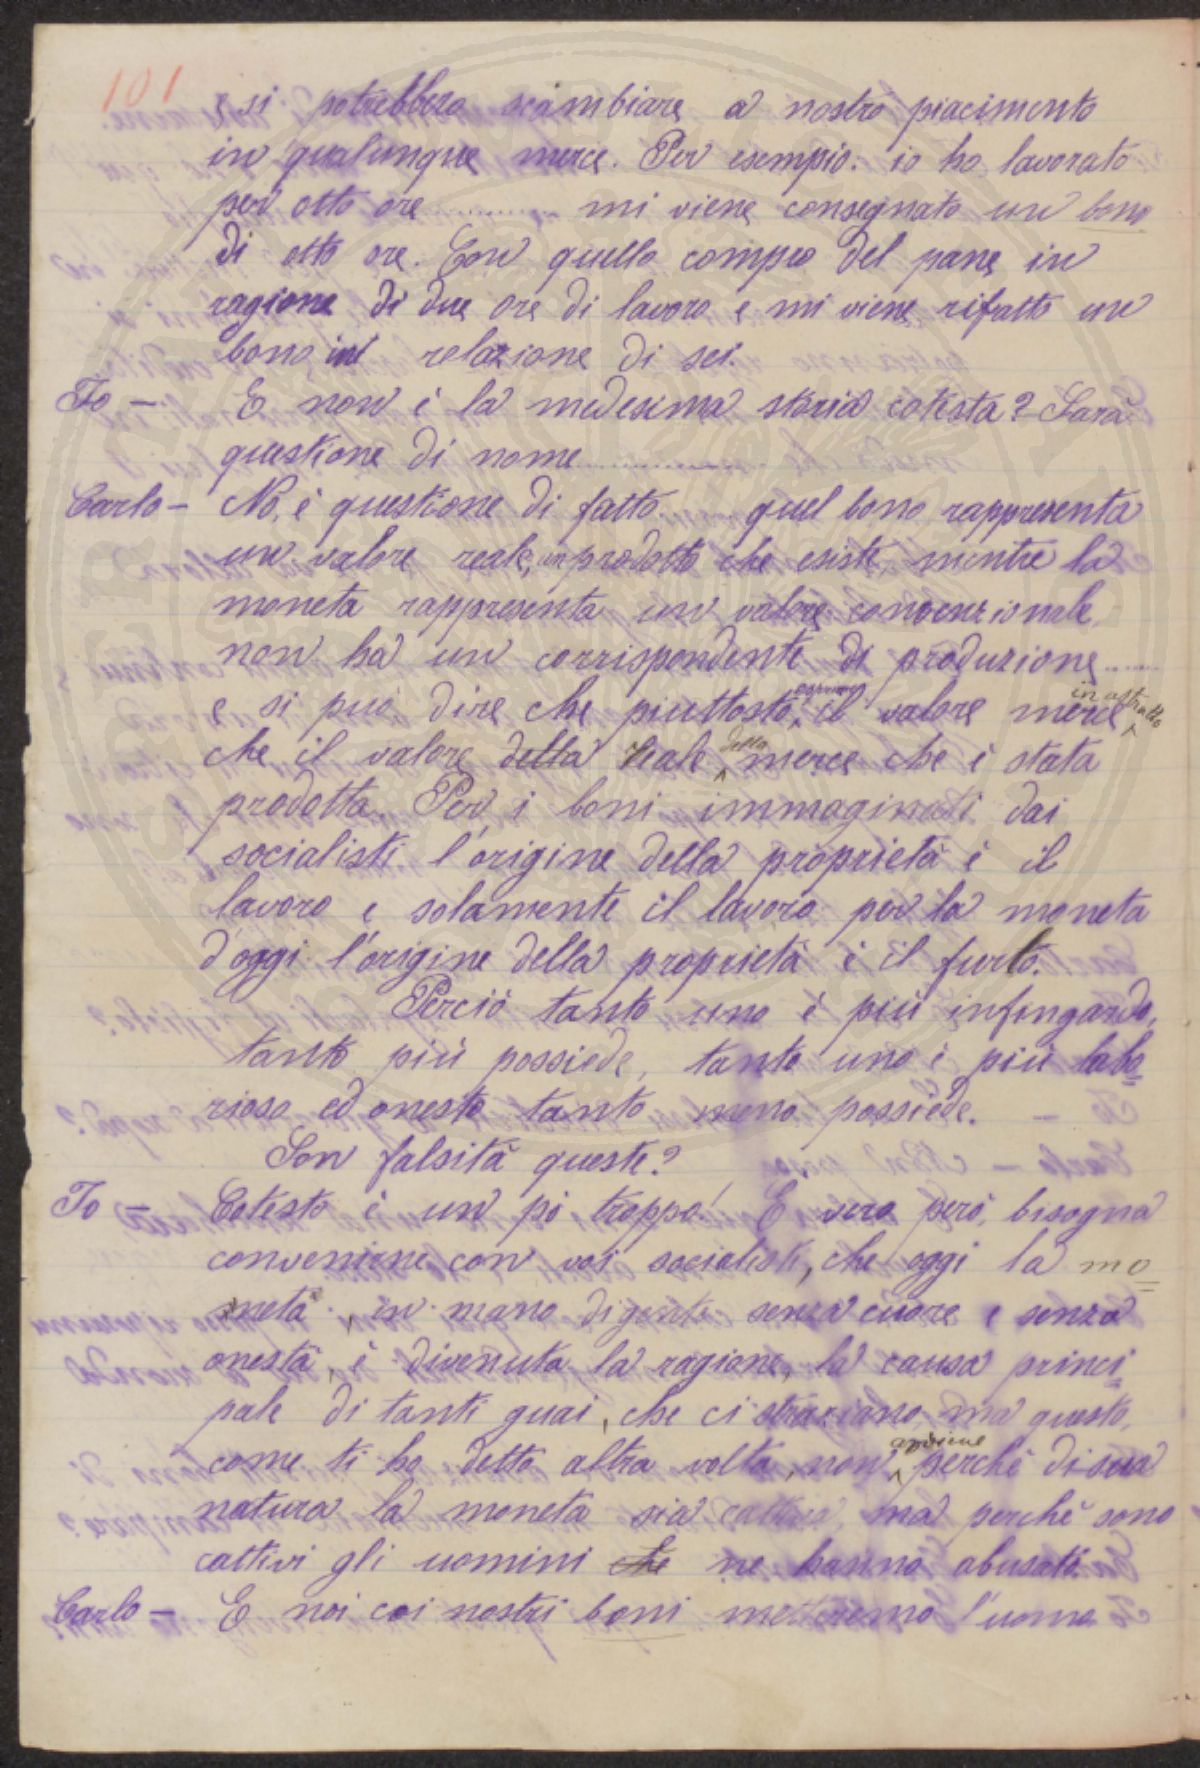 101
e si potrebbero scambiare a nostro piacimento
in qualunque merce. Per esempio: io ho lavorato
per otto ore ............ mi viene consegnato un bono
di otto ore. Con quello compro del pane in
ragione di due ore di lavoro e mi viene rifatto un
bono in relazione di sei.
Io — E non è la medesima storia cotesta? Sarà
questione di nome ................
Carlo — No, è questione di fatto. quel bono rappresenta
un valore reale, un prodotto che esiste, mentre la
moneta rappresenta un valore convenzionale,
non ha un corrispondente di produzione ......
e si può dire che piuttosto esprime il valore merce in astratto
che il valore della reale della merce che è stata
prodotta. Per i boni immaginati dai
socialisti l'origine della proprietà è il
lavoro e solamente il lavoro per la moneta
d'oggi l'origine della proprietà è il furto.
Perciò tanto uno è più infingardo,
tanto più possiede, tanto uno è più labo=
rioso ed onesto tanto meno possiede.
Son falsità queste?
Io — Cotesto è un pò troppo! È vero però, bisogna
convenirne con voi socialisti, che oggi la mo=
neta in mano di gente senza cuore e senza
onestà, è divenuta la ragione, la causa princi=
pale di tanti guai, che ci straziano, ma questo,
come ti ho detto altra volta, non avviene perchè di sua
natura la moneta sia cattiva, ma perchè sono
cattivi gli uomini che ne hanno abusato.
Carlo — E noi coi nostri boni metteremo l'uomo